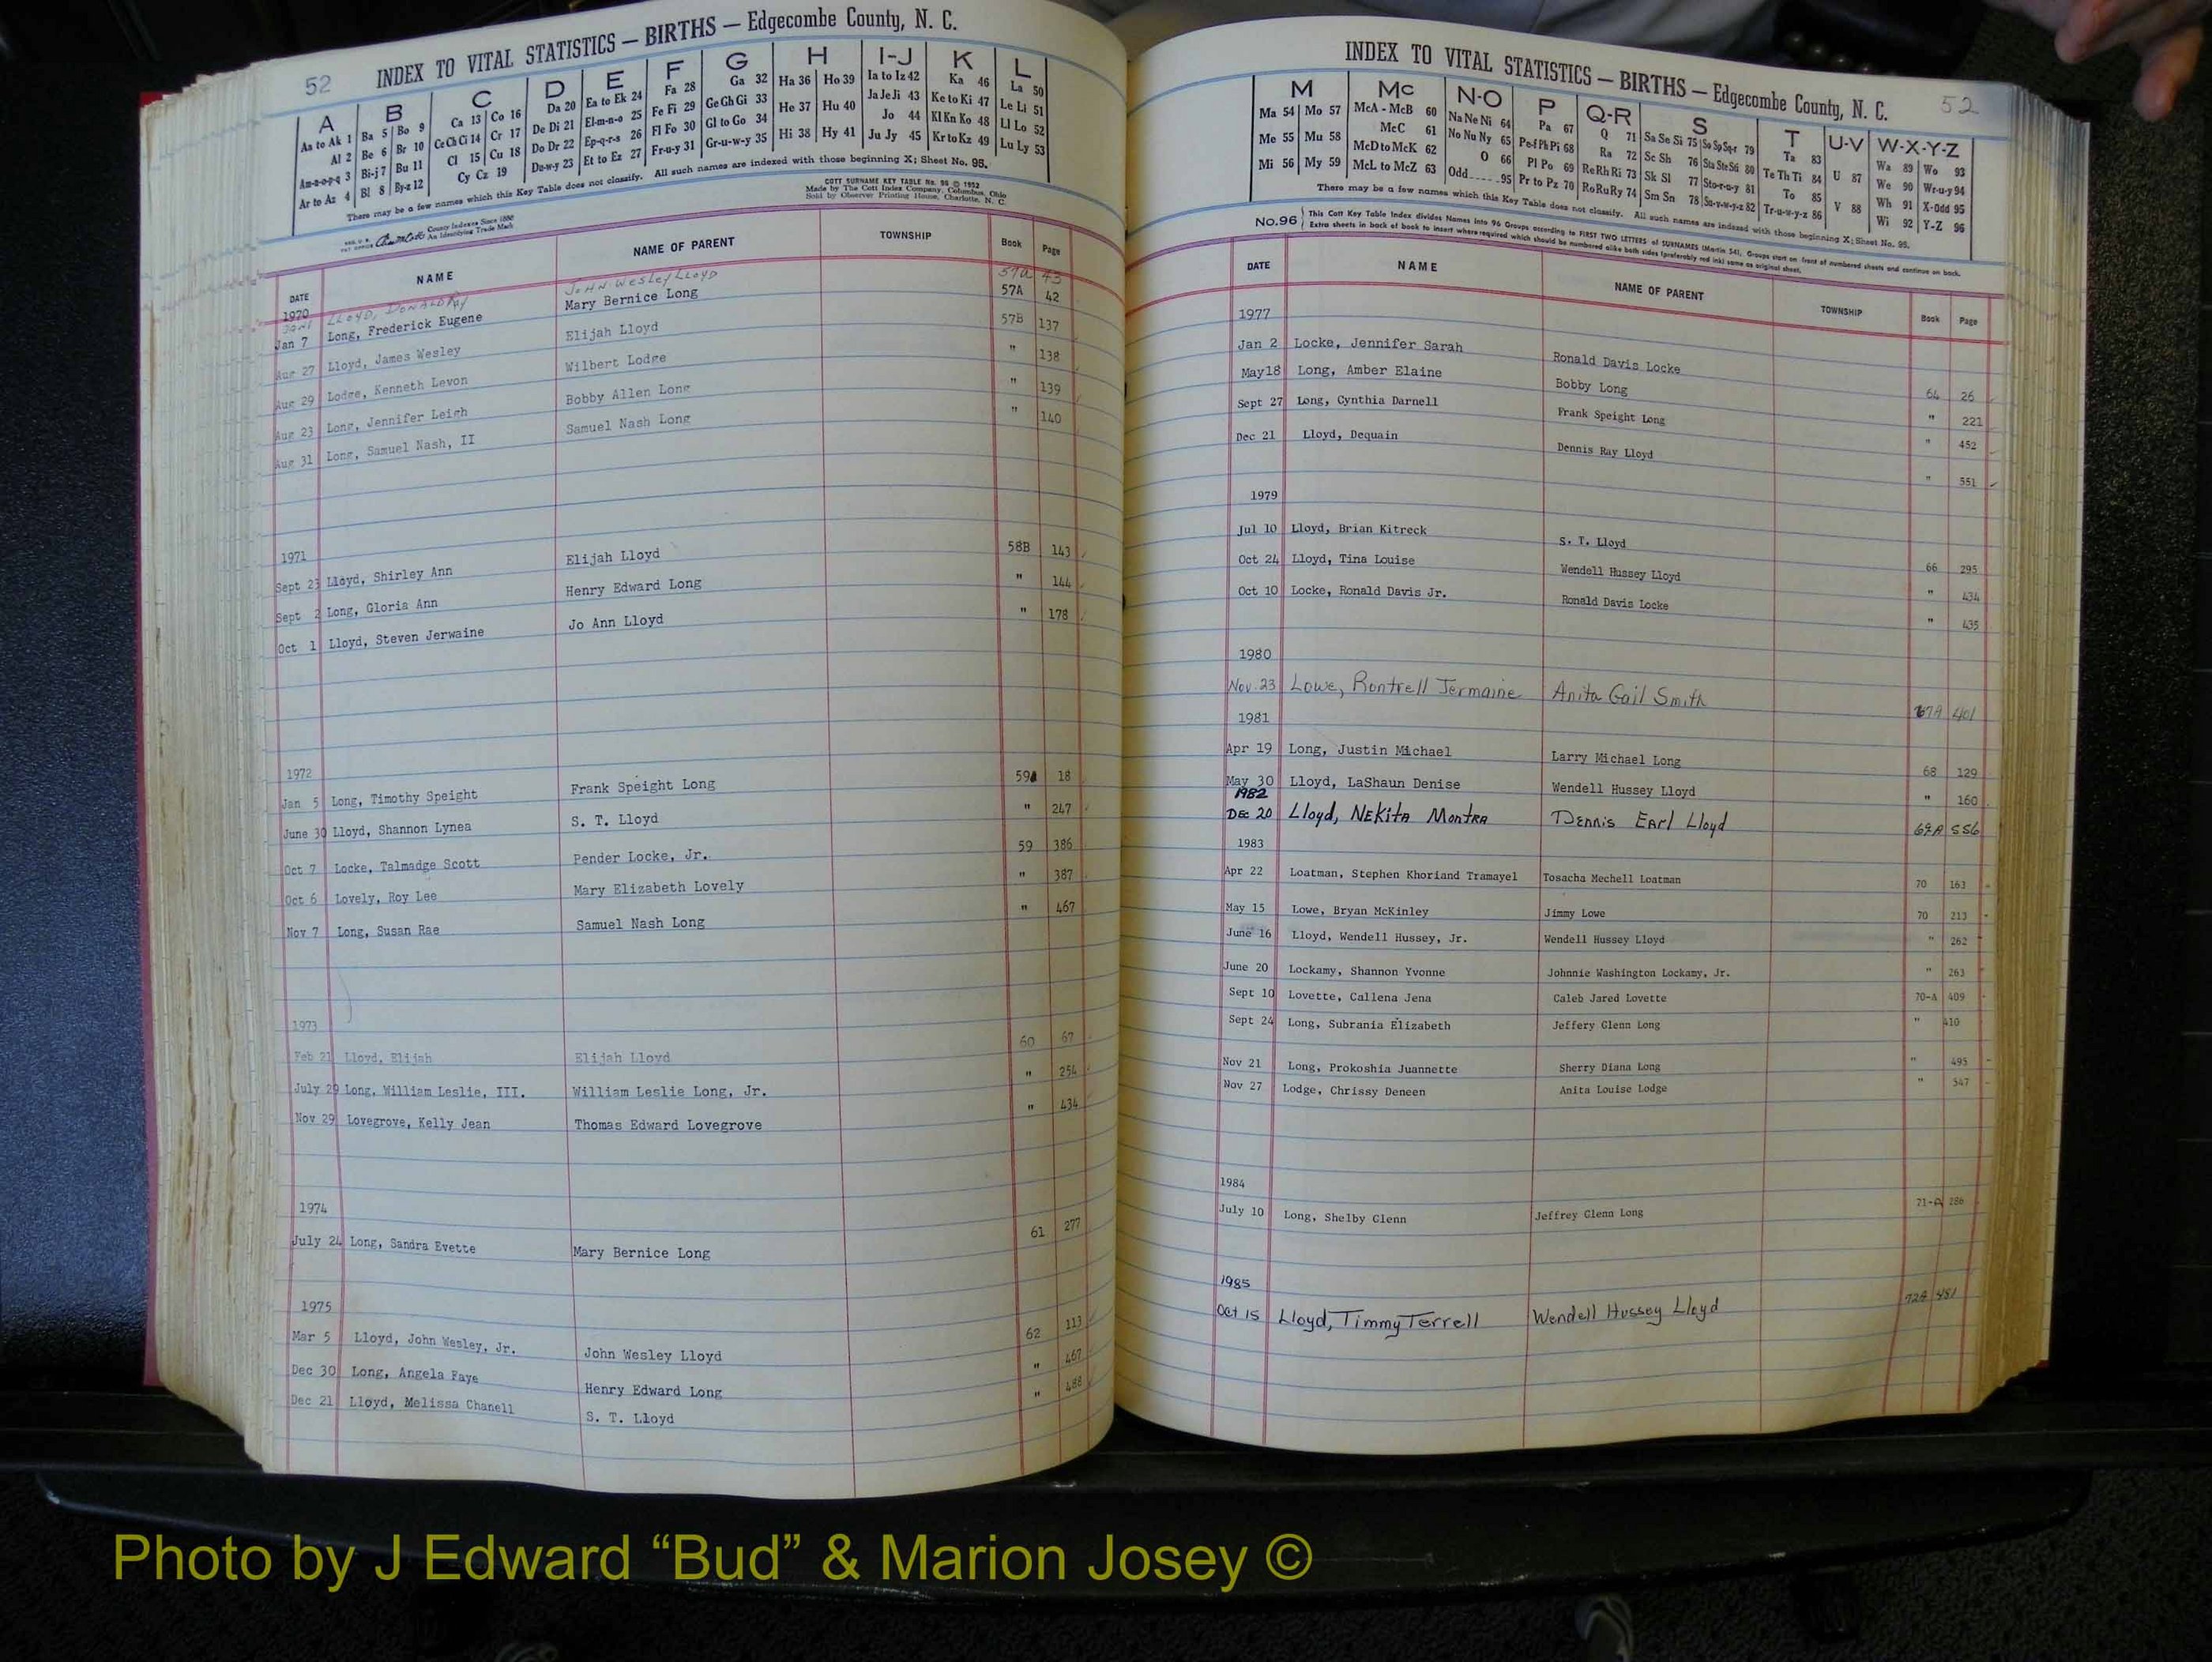 52 INDEX TO VITAL STATISTICS — BIRTHS — Edgecombe County, N. C.
A B C D E F G H I-J K L
Aa to Ak 1 Ba 5 Bo 9 Ca 13 Co 16 Da 20 Ea to Ek 24 Fa 28 Ga 32 Ha 36 Ho 39 Ia to Iz 42 Ka 46 La 50
Al 2 Be 6 Br 10 Ce Ch Ci 14 Cr 17 De Di 21 El-m-n-o 25 Fe Fi 29 Ge Gh Gi 33 He 37 Hu 40 Ja Je Ji 43 Ke to Ki 47 Le Li 51
Am-n-o-p-q 3 Bi-j 7 Bu 11 Cl 15 Cu 18 Do Dr 22 Ep-q-r-s 26 Fl Fo 30 Gl to Go 34 Hi 38 Hy 41 Jo 44 Kl Kn Ko 48 Ll Lo 52
Ar to Az 4 Bl 8 By-z 12 Cy Cz 19 Du-w-y 23 Et to Ez 27 Fr-u-y 31 Gr-u-w-y 35 Ju Jy 45 Kr to Kz 49 Lu Ly 53
There may be a few names which this Key Table does not classify. All such names are indexed with those beginning X; Sheet No. 95.
COTT SURNAME KEY TABLE No. 96 © 1952
Made by The Cott Index Company, Columbus, Ohio
Sold by Observer Printing House, Charlotte, N. C.
County Indexes Since 1888
An Identifying Trade Mark
DATE NAME NAME OF PARENT TOWNSHIP Book Page
1970 LLOYD, DONALD RAY JOHN WESLEY LLOYD 57A 43
Jan 7 Long, Frederick Eugene Mary Bernice Long 57A 42
Aug 27 Lloyd, James Wesley Elijah Lloyd 57B 137
Aug 29 Lodge, Kenneth Levon Wilbert Lodge " 138
Aug 23 Long, Jennifer Leigh Bobby Allen Long " 139
Aug 31 Long, Samuel Nash, II Samuel Nash Long " 140
1971
Sept 23 Lloyd, Shirley Ann Elijah Lloyd 58B 143
Sept 2 Long, Gloria Ann Henry Edward Long " 144
Oct 1 Lloyd, Steven Jerwaine Jo Ann Lloyd " 178
1972
Jan 5 Long, Timothy Speight Frank Speight Long 59A 18
June 30 Lloyd, Shannon Lynea S. T. Lloyd " 247
Oct 7 Locke, Talmadge Scott Pender Locke, Jr. 59 386
Oct 6 Lovely, Roy Lee Mary Elizabeth Lovely " 387
Nov 7 Long, Susan Rae Samuel Nash Long " 467
1973
Feb 21 Lloyd, Elijah Elijah Lloyd 60 67
July 29 Long, William Leslie, III. William Leslie Long, Jr. " 254
Nov 29 Lovegrove, Kelly Jean Thomas Edward Lovegrove " 434
1974
July 24 Long, Sandra Evette Mary Bernice Long 61 277
1975
Mar 5 Lloyd, John Wesley, Jr. John Wesley Lloyd 62 113
Dec 30 Long, Angela Faye Henry Edward Long " 467
Dec 21 Lloyd, Melissa Chanell S. T. Lloyd " 488
INDEX TO VITAL STATISTICS — BIRTHS — Edgecombe County, N. C. 52
M Mc N-O P Q-R S T U-V W-X-Y-Z
Ma 54 Mo 57 McA - McB 60 Na Ne Ni 64 Pa 67 Q 71 Sa Se Si 75 So Sp Sq-r 79 Ta 83 U 87 Wa 89 Wo 93
Me 55 Mu 58 McC 61 No Nu Ny 65 Pe-f Ph Pi 68 Ra 72 Sc Sh 76 Sta Ste Sti 80 Te Th Ti 84 V 88 We 90 Wr-u-y 94
Mi 56 My 59 McD to McK 62 O 66 Pl Po 69 Re Rh Ri 73 Sk Sl 77 Sto-r-u-y 81 To 85 Wh 91 X-Odd 95
McL to McZ 63 Odd 95 Pr to Pz 70 Ro Ru Ry 74 Sm Sn 78 Su-v-w-y-z 82 Tr-u-w-y-z 86 Wi 92 Y-Z 96
There may be a few names which this Key Table does not classify. All such names are indexed with those beginning X; Sheet No. 95.
No. 96 This Cott Key Table Index divides Names into 96 Groups according to FIRST TWO LETTERS of SURNAMES (Martin 54). Groups start on front of numbered sheets and continue on back.
Extra sheets in back of book to insert where required which should be numbered alike both sides (preferably red ink) same as original sheet.
DATE NAME NAME OF PARENT TOWNSHIP Book Page
1977
Jan 2 Locke, Jennifer Sarah Ronald Davis Locke 64 26
May 18 Long, Amber Elaine Bobby Long " 221
Sept 27 Long, Cynthia Darnell Frank Speight Long " 452
Dec 21 Lloyd, Dequain Dennis Ray Lloyd " 551
1979
Jul 10 Lloyd, Brian Kitreck S. T. Lloyd 66 295
Oct 24 Lloyd, Tina Louise Wendell Hussey Lloyd " 434
Oct 10 Locke, Ronald Davis Jr. Ronald Davis Locke " 435
1980
Nov. 23 Lowe, Rontrell Jermaine Anita Gail Smith 67A 401
1981
Apr 19 Long, Justin Michael Larry Michael Long 68 129
May 30 Lloyd, LaShaun Denise Wendell Hussey Lloyd " 160
1982
DEC 20 Lloyd, NEKitA MontRA DEnnis EArl Lloyd 69A 556
1983
Apr 22 Loatman, Stephen Khoriand Tramayel Tosacha Mechell Loatman 70 163
May 15 Lowe, Bryan McKinley Jimmy Lowe 70 213
June 16 Lloyd, Wendell Hussey, Jr. Wendell Hussey Lloyd " 262
June 20 Lockamy, Shannon Yvonne Johnnie Washington Lockamy, Jr. " 263
Sept 10 Lovette, Callena Jena Caleb Jared Lovette 70-A 409
Sept 24 Long, Subrania Elizabeth Jeffery Glenn Long " 410
Nov 21 Long, Prokoshia Juannette Sherry Diana Long " 495
Nov 27 Lodge, Chrissy Deneen Anita Louise Lodge " 547
1984
July 10 Long, Shelby Glenn Jeffrey Glenn Long 71-A 286
1985
Oct 15 Lloyd, Timmy Terrell Wendell Hussey Lloyd 72A 451
Photo by J Edward “Bud” & Marion Josey ©